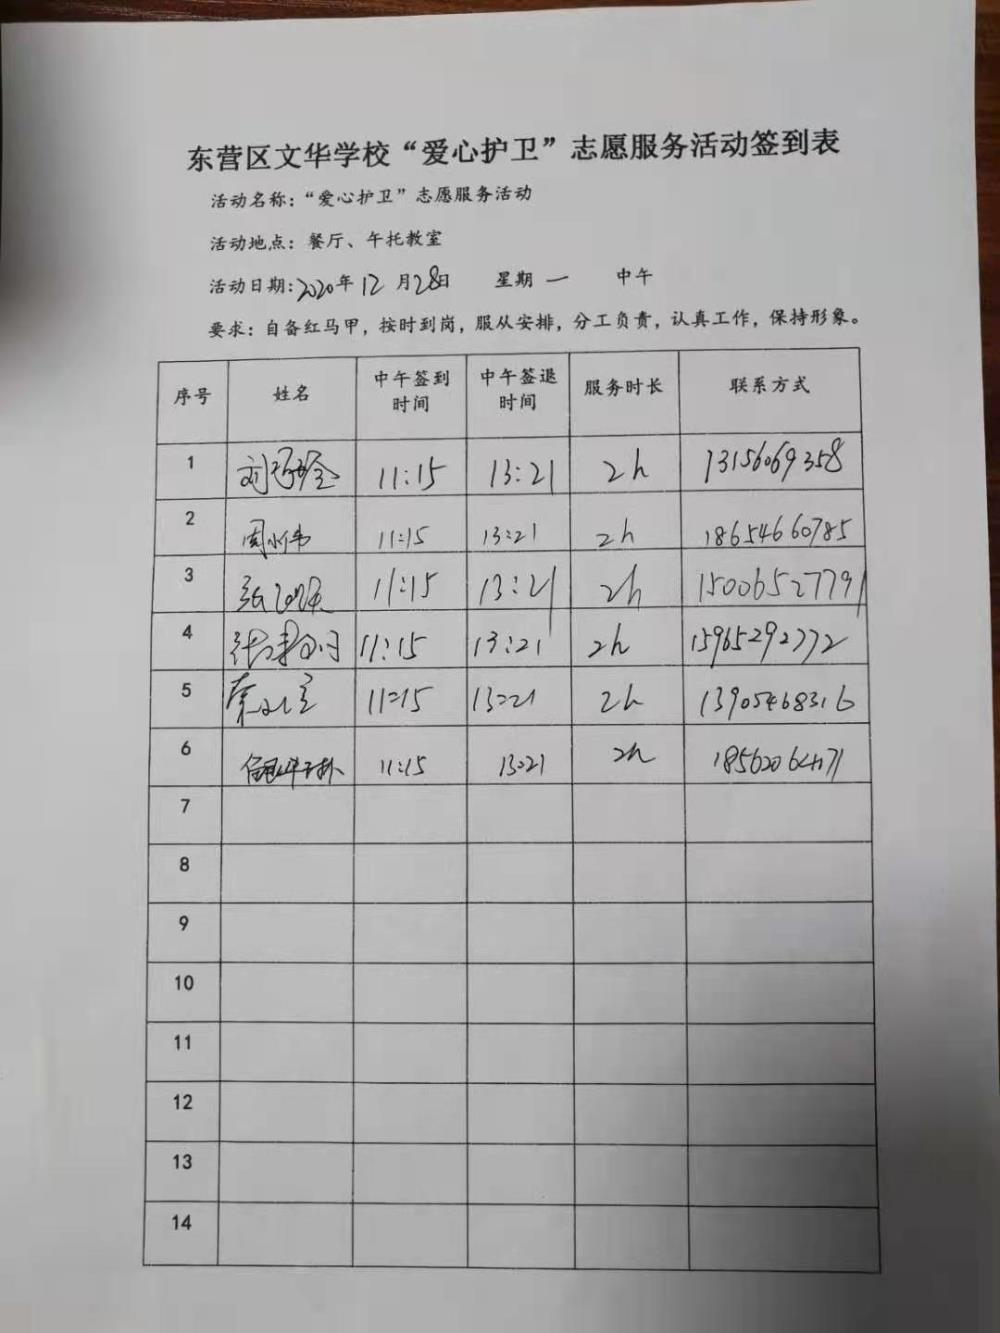 东营区文华学校“爱心护卫”志愿服务活动签到表
活动名称：“爱心护卫”志愿服务活动
活动地点：餐厅、午托教室
活动日期：2020年12月28日 星期一 中午
要求：自备红马甲，按时到岗，服从安排，分工负责，认真工作，保持形象。
序号 姓名 中午签到时间 中午签退时间 服务时长 联系方式
1 11:15 13:21 2h 13156069358
2 11:15 13:21 2h 18654660785
3 11:15 13:21 2h 15006527791
4 11:15 13:21 2h 15965292772
5 11:15 13:21 2h 13905468316
6 11:15 13:21 2h
7
8
9
10
11
12
13
14